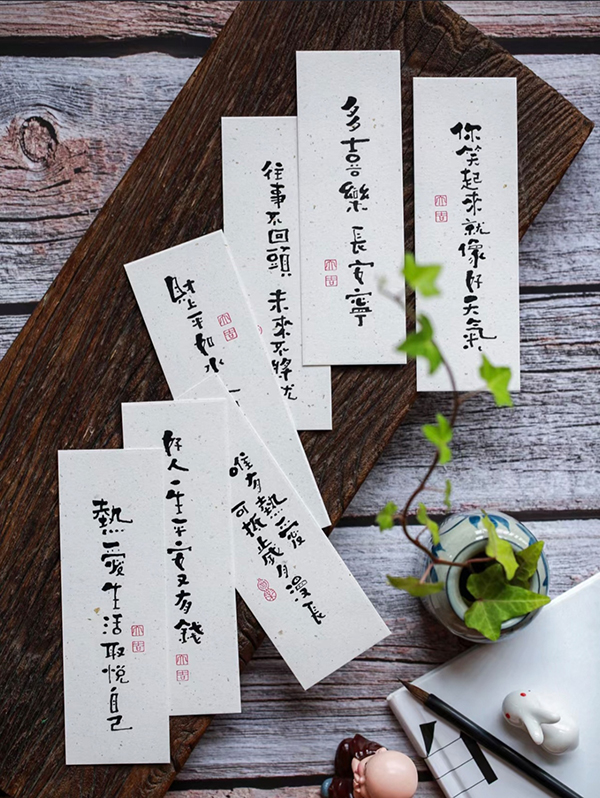 你笑起來就像好天氣
多喜樂 長安寧
往事不回頭 未來不將就
財上平如水
唯有熱愛
可抵歲月漫長
好人一生平安又有錢
熱愛生活取悅自己